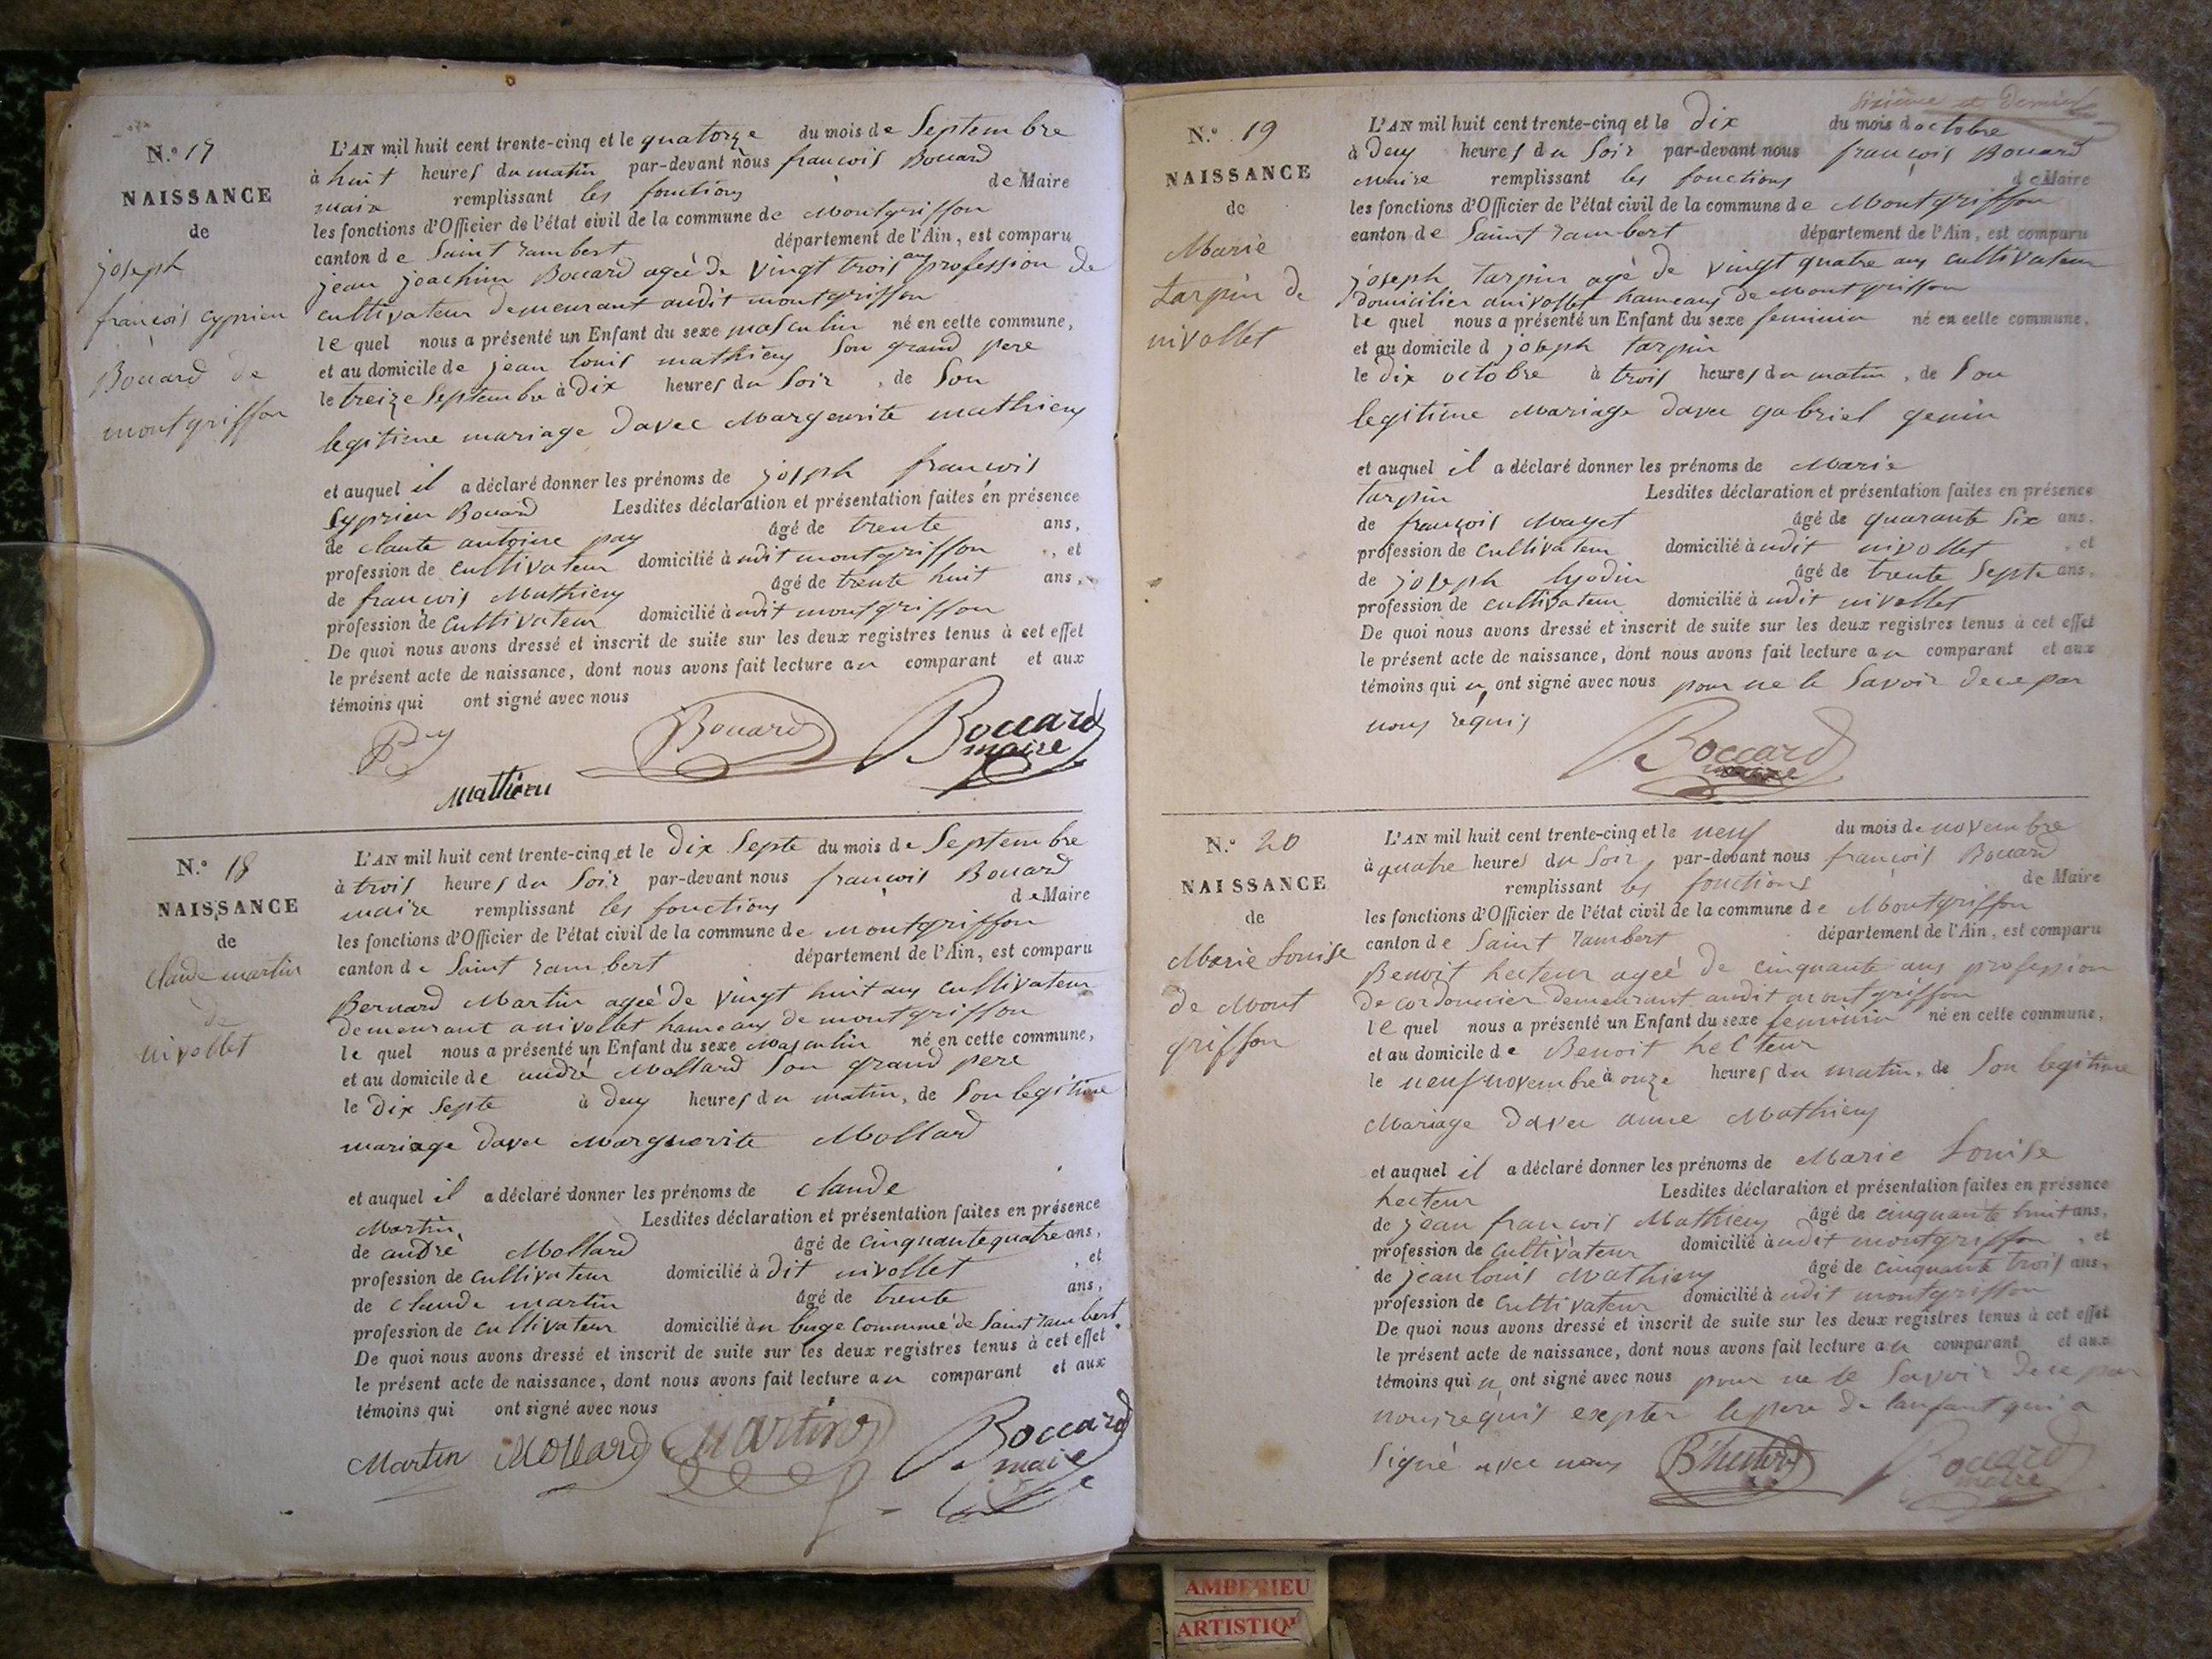 N.º 17
NAISSANCE
de
joseph
françois cyprien
Bouard de
montgriffon
L'AN mil huit cent trente-cinq et le quatorze du mois de Septembre
à huit heures du matin par-devant nous françois Bouard
maire remplissant les fonctions de Maire
les fonctions d'Officier de l'état civil de la commune de Montgriffon
canton de Saint rambert département de l'Ain, est comparu
jean joachim Bouard ageé de vingt trois ans profession de
cultivateur demeurant audit montgriffon
le quel nous a présenté un Enfant du sexe masculin né en cette commune,
et au domicile de jean louis mathieu Son grand pere
le treize Septembre à dix heures du Soir, de Son
legitime mariage davec Margeurite mathieu
et auquel il a déclaré donner les prénoms de joseph françois
Cyprien Bouard Lesdites déclaration et présentation faites en présence
de claute antoine pay âgé de trente ans,
profession de cultivateur domicilié à udit montgriffon, et
de françois Mathieu âgé de trente huit ans,
profession de cultivateur domicilié à udit montgriffon
De quoi nous avons dressé et inscrit de suite sur les deux registres tenus à cet effet
le présent acte de naissance, dont nous avons fait lecture au comparant et aux
témoins qui ont signé avec nous
Bouard Boccard
maire
Mathieu
N.º 18
NAISSANCE
de
Claude martin
de
nivollet
L'AN mil huit cent trente-cinq et le dix Septe du mois de Septembre
à trois heures du Soir par-devant nous françois Bouard
maire remplissant les fonctions de Maire
les fonctions d'Officier de l'état civil de la commune de montgriffon
canton de Saint rambert département de l'Ain, est comparu
Bernard Martin ageé de vingt huit ans cultivateur
demeurant a nivollet hameaux de montgriffon
le quel nous a présenté un Enfant du sexe Masculin né en cette commune,
et au domicile de andré Mollard Son grand pere
le dix Septe à deux heures du matin, de Son legitime
mariage davec Marguerite Mollard
et auquel il a déclaré donner les prénoms de claude
Martin Lesdites déclaration et présentation faites en présence
de andré Mollard âgé de cinquante quatre ans,
profession de cultivateur domicilié à dit nivollet, et
de claude martin âgé de trente ans,
profession de cultivateur domicilié à commune de Saint rambert
De quoi nous avons dressé et inscrit de suite sur les deux registres tenus à cet effet
le présent acte de naissance, dont nous avons fait lecture au comparant et aux
témoins qui ont signé avec nous
Martin Mollard Martin Boccard
maire
Sixième et Dernière
N.º 19
NAISSANCE
de
Marie
tarpin de
nivollet
L'AN mil huit cent trente-cinq et le dix du mois d octobre
à deux heures du Soir par-devant nous françois Bouard
Maire remplissant les fonctions de Maire
les fonctions d'Officier de l'état civil de la commune de Montgriffon
canton de Saint rambert département de l'Ain, est comparu
joseph tarpin agé de vingt quatre ans cultivateur
domicilier anivollet hameaux de Montgriffon
le quel nous a présenté un Enfant du sexe feminin né en cette commune,
et au domicile d joseph tarpin
le dix octobre à trois heures du matin, de Son
legitime Mariage davec gabriel genin
et auquel il a déclaré donner les prénoms de Marie
tarpin Lesdites déclaration et présentation faites en présence
de françois Mayet âgé de quarante Six ans,
profession de cultivateur domicilié à udit nivollet, et
de joseph âgé de trente Septe ans,
profession de cultivateur domicilié à udit nivollet
De quoi nous avons dressé et inscrit de suite sur les deux registres tenus à cet effet
le présent acte de naissance, dont nous avons fait lecture au comparant et aux
témoins qui n ont signé avec nous pour ne le Savoir de ce par
nous requis
Boccard
maire
N.º 20
NAISSANCE
de
Marie Louise
de Mont
griffon
L'AN mil huit cent trente-cinq et le neuf du mois de novembre
à quatre heures du Soir, par-devant nous françois Bouard
remplissant les fonctions de Maire
les fonctions d'Officier de l'état civil de la commune de Montgriffon
canton de Saint rambert département de l'Ain, est comparu
Benoit hecteur ageé de cinquante ans profession
de cordonnier demeurant audit montgriffon
le quel nous a présenté un Enfant du sexe feminin né en cette commune,
et au domicile de Benoit hecteur
le neuf novembre à onze heures du matin, de Son legitime
Mariage davec anne Mathieu
et auquel il a déclaré donner les prénoms de Marie Louise
hecteur Lesdites déclaration et présentation faites en présence
de jean françois Mathieu âgé de cinquante huit ans,
profession de cultivateur domicilié à udit montgriffon, et
de jean louis Mathieu âgé de cinquante trois ans,
profession de cultivateur domicilié à udit montgriffon
De quoi nous avons dressé et inscrit de suite sur les deux registres tenus à cet effet
le présent acte de naissance, dont nous avons fait lecture au comparant et aux
témoins qui n ont signé avec nous pour ne le Savoir de ce par
nous requis exepter le pere de lanfant qui a
Signé avec nous Boccard
maire
AMBERIEU
ARTISTIQU